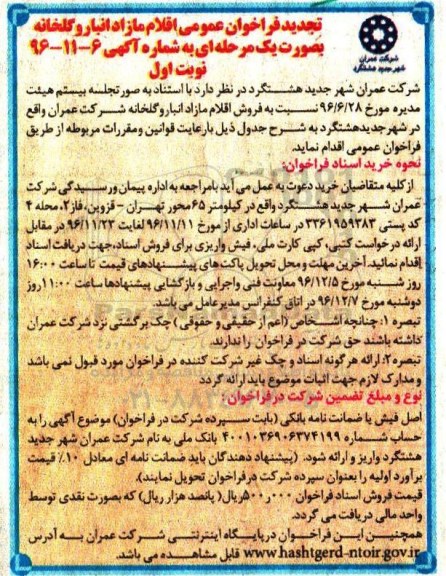 تجدید فراخوان عمومی اقلام مازاد انبار و گلخانه
بصورت یک مرحله ای به شماره آگهی ۶-۱۱-۹۶
نوبت اول
شرکت عمران
شهر جدید هشتگرد
شرکت عمران شهر جدید هشتگرد در نظر دارد با استناد به صورتجلسه بیستم هیئت
مدیره مورخ ۹۶/۶/۲۸ نسبت به فروش اقلام مازاد انبار و گلخانه شرکت عمران واقع
در شهر جدید هشتگرد به شرح جدول ذیل با رعایت قوانین و مقررات مربوطه از طریق
فراخوان عمومی اقدام نماید.
نحوه خرید اسناد فراخوان:
از کلیه متقاضیان خرید دعوت به عمل می آید با مراجعه به اداره پیمان و رسیدگی شرکت
عمران شهر جدید هشتگرد واقع در کیلومتر ۶۵ محور تهران - قزوین، فاز ۲، محله ۴
کد پستی ۳۳۶۱۹۵۹۳۸۳ در ساعات اداری از مورخ ۹۶/۱۱/۱۱ لغایت ۹۶/۱۱/۲۳ در مقابل
ارائه درخواست کتبی، کپی کارت ملی، فیش واریزی برای فروش اسناد، جهت دریافت اسناد
اقدام نمائید. آخرین مهلت و محل تحویل پاکت های پیشنهادهای قیمت تا ساعت ۱۶:۰۰
روز شنبه مورخ ۹۶/۱۲/۵ معاونت فنی و اجرایی و بازگشایی پیشنهادها ساعت ۱۱:۰۰ روز
دوشنبه مورخ ۹۶/۱۲/۷ در اتاق کنفرانس مدیر عامل می باشد.
تبصره ۱: چنانچه اشخاص (اعم از حقیقی و حقوقی) چک برگشتی نزد شرکت عمران
داشته باشند حق شرکت در فراخوان را ندارند.
تبصره ۲: ارائه هرگونه اسناد و چک غیر شرکت کننده در فراخوان مورد قبول نمی باشد
و مدارک لازم جهت اثبات موضوع باید ارائه گردد
نوع و مبلغ تضمین شرکت در فراخوان:
اصل فیش یا ضمانت نامه بانکی (بابت سپرده شرکت در فراخوان) موضوع آگهی را به
حساب شماره ۴۰۰۱۰۳۶۹۰۶۳۷۴۱۹۹ بانک ملی به نام شرکت عمران شهر جدید
هشتگرد واریز و ارائه شود. (پیشنهاد دهندگان باید ضمانت نامه ای معادل ۱۰٪ قیمت
برآورد اولیه را بعنوان سپرده شرکت در فراخوان تحویل نمایند).
قیمت فروش اسناد فراخوان ۵۰۰،۰۰۰ ریال( پانصد هزار ریال) که بصورت نقدی توسط
واحد مالی دریافت می گردد.
همچنین این فراخوان در پایگاه اینترنتی شرکت عمران به آدرس
www.hashtgerd-ntoir.gov.ir قابل مشاهده می باشد.